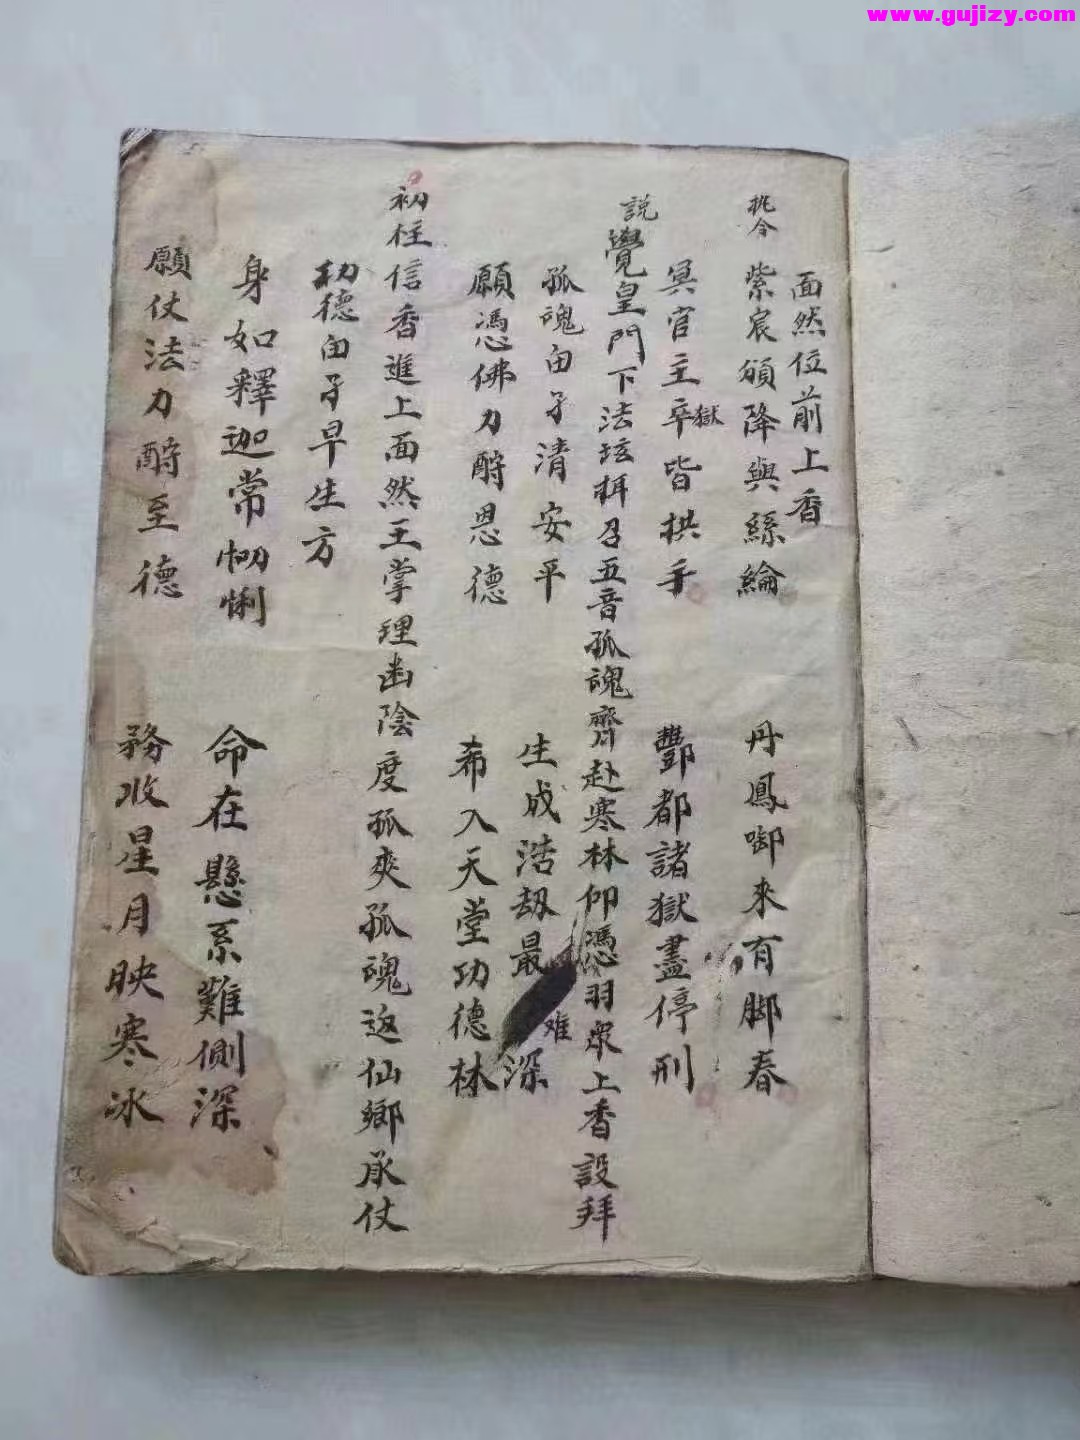 www.gujizy.com
面然位前上香
挑今
紫宸頒降與絲綸 丹鳳啣來有脚春
冥官主卒獄皆拱手 酆都諸獄盡停刑
説
覺皇門下法壇 召五音孤魂齊赴寒林仰憑羽衆上香設拜
孤魂由子清安平 生成浩劫最难深
願憑佛力酧恩德 希入天堂功德林
初炷信香進上面然王掌理幽陰度孤爽孤魂返仙鄉承仗
功德由子早生方
身如釋迦常怮悧 命在懸系難側深
願仗法力酧至德 務收星月映寒冰